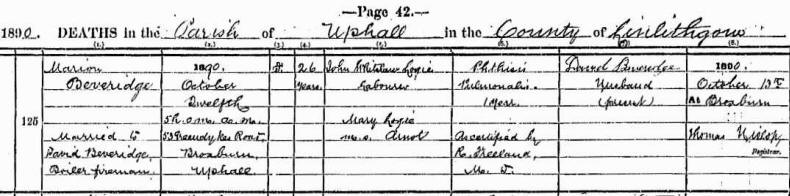 —Page 42.—
1890. DEATHS in the Parish of Uphall in the County of Linlithgow
(1.) (2.) (3.) (4.) (5.) (6.) (7.) (8.)
Marion 1890. F 26 John Logie Phthisis David Beveridge 1890.
Beveridge October years. Labourer Pulmonalis Widower October 13th
Twelfth 1 year (present) At Broxburn
5 h. 0 m. a.m. Mary Logie
125
Married to Road, m.s. As certified by Thomas Hislop
David Beveridge, Broxburn, R. Freeland, Registrar.
Boiler fireman Uphall. M. D.